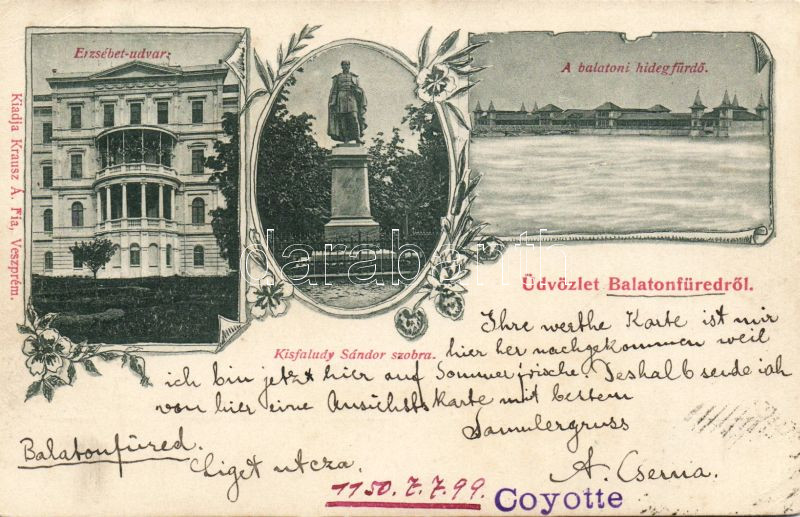 Erzsébet-udvar.
A balatoni hidegfürdő.
Kiadja Krausz Á. Fia, Veszprém.
darabanth
Üdvözlet Balatonfüredről.
Kisfaludy Sándor szobra.
Ihre werthe Karte ist mir
hier her nachgekommen weil
ich bin jetzt hier auf Sommerfrische. Deshalb sende ich
von hier eine Ansichtskarte mit bestem
Samulergruss
A. Cserna.
Balatonfüred.
Liget utcza.
1150. 7. 7. 99.
Coyotte